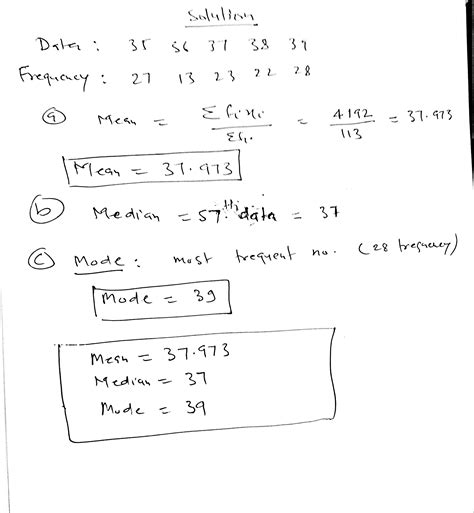 Solution
Data : 35 36 37 38 39
Frequency : 27 13 23 22 28
(a) Mean = Σfixi / Σfi = 4192 / 113 = 37.973
Mean = 37.973
(b) Median = 57th data = 37
(c) Mode : most frequent no. (28 frequency)
Mode = 39
Mean = 37.973
Median = 37
Mode = 39